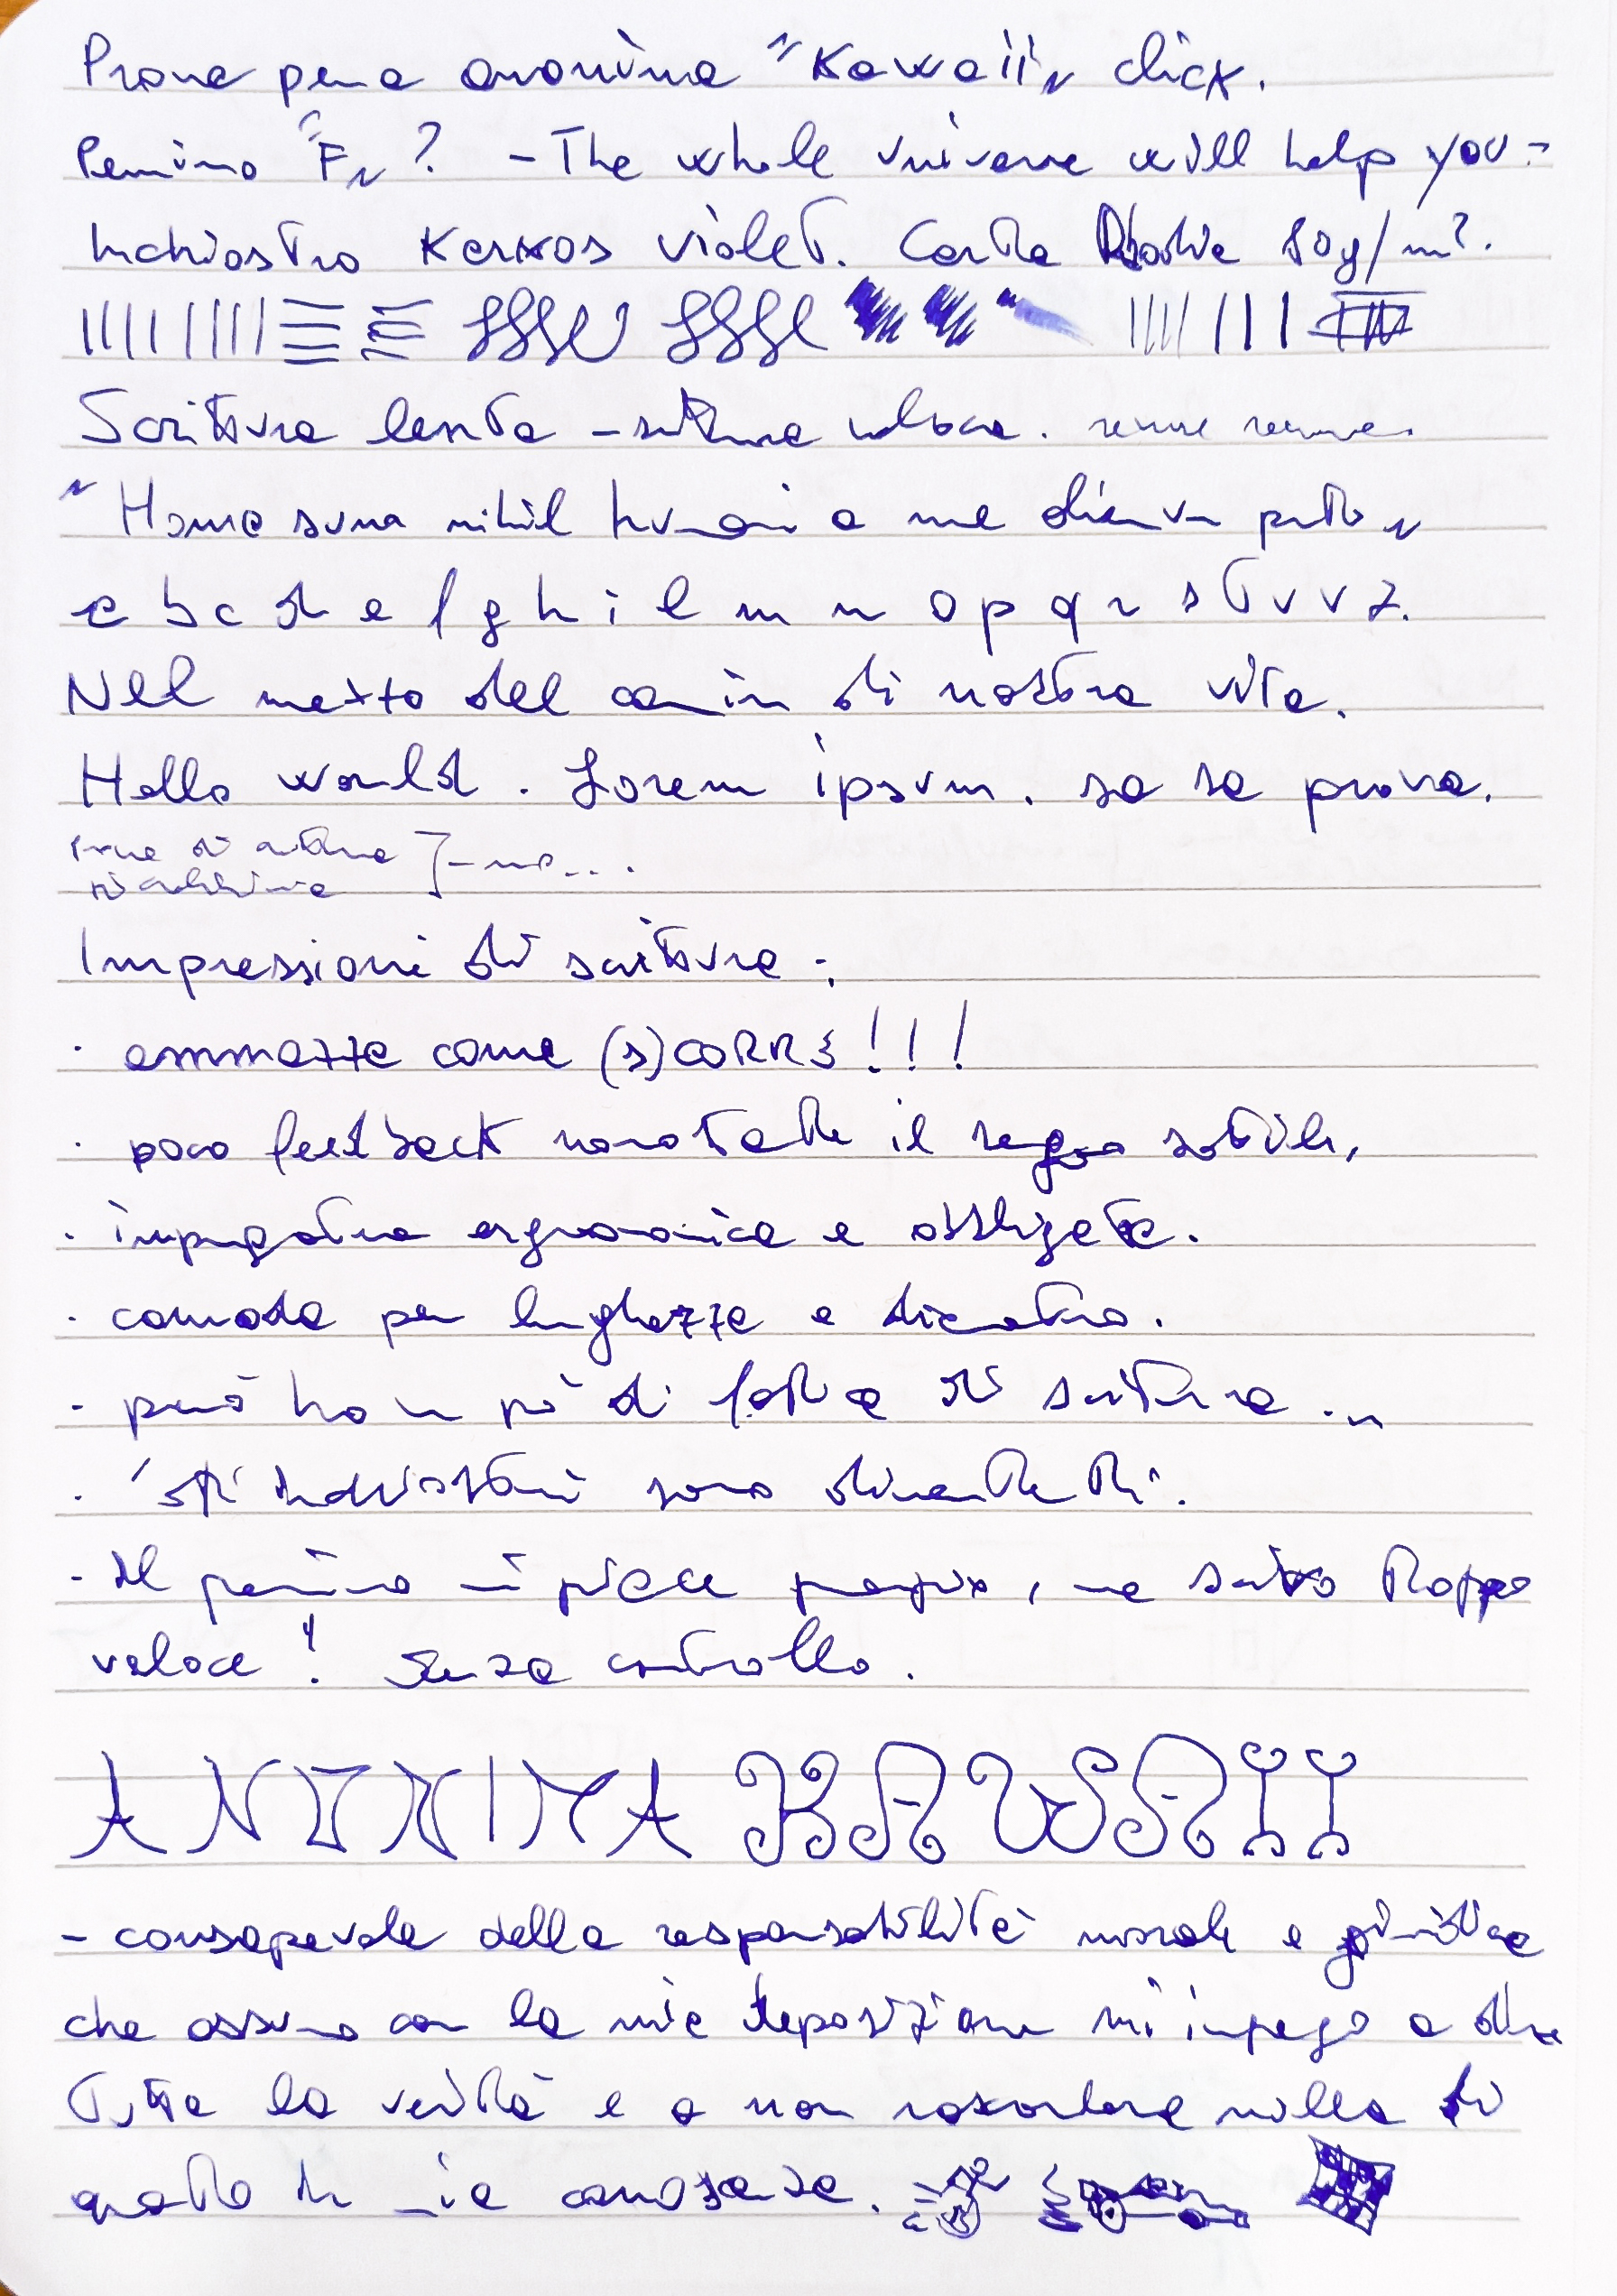 Prova penna anonima "Kawaii" click.
Pennino "F"? - The whole universe will help you -
Inchiostro Karkos violet. Carta 80g/m².
Scrittura lenta - scrittura veloce.
"Homo sum nihil humani a me alienum puto"
a b c d e f g h i l m n o p q r s t u v z.
Nel mezzo del camin di nostra vita.
Hello world. Lorem ipsum. sa sa prova.
prova di scrittura
Impressioni di scrittura:
· ammazza come (s)CORRE!!!
· poco feedback nonostante il segno sottile,
· impugnatura ergonomica e obbligata.
· comoda per lunghezza e diametro.
- però ha un po' di fatica di scrittura ...
· gli inchiostri sono divertenti.
- Il pennino mi piace proprio, ma scrivo troppo
veloce! Senza controllo.
ANONIMA KAWAII
- consapevole della responsabilità morale e giuridica
che assumo con la mia deposizione mi impegno a dire
tutta la verità e a non nascondere nulla di
quanto è a mia conoscenza.